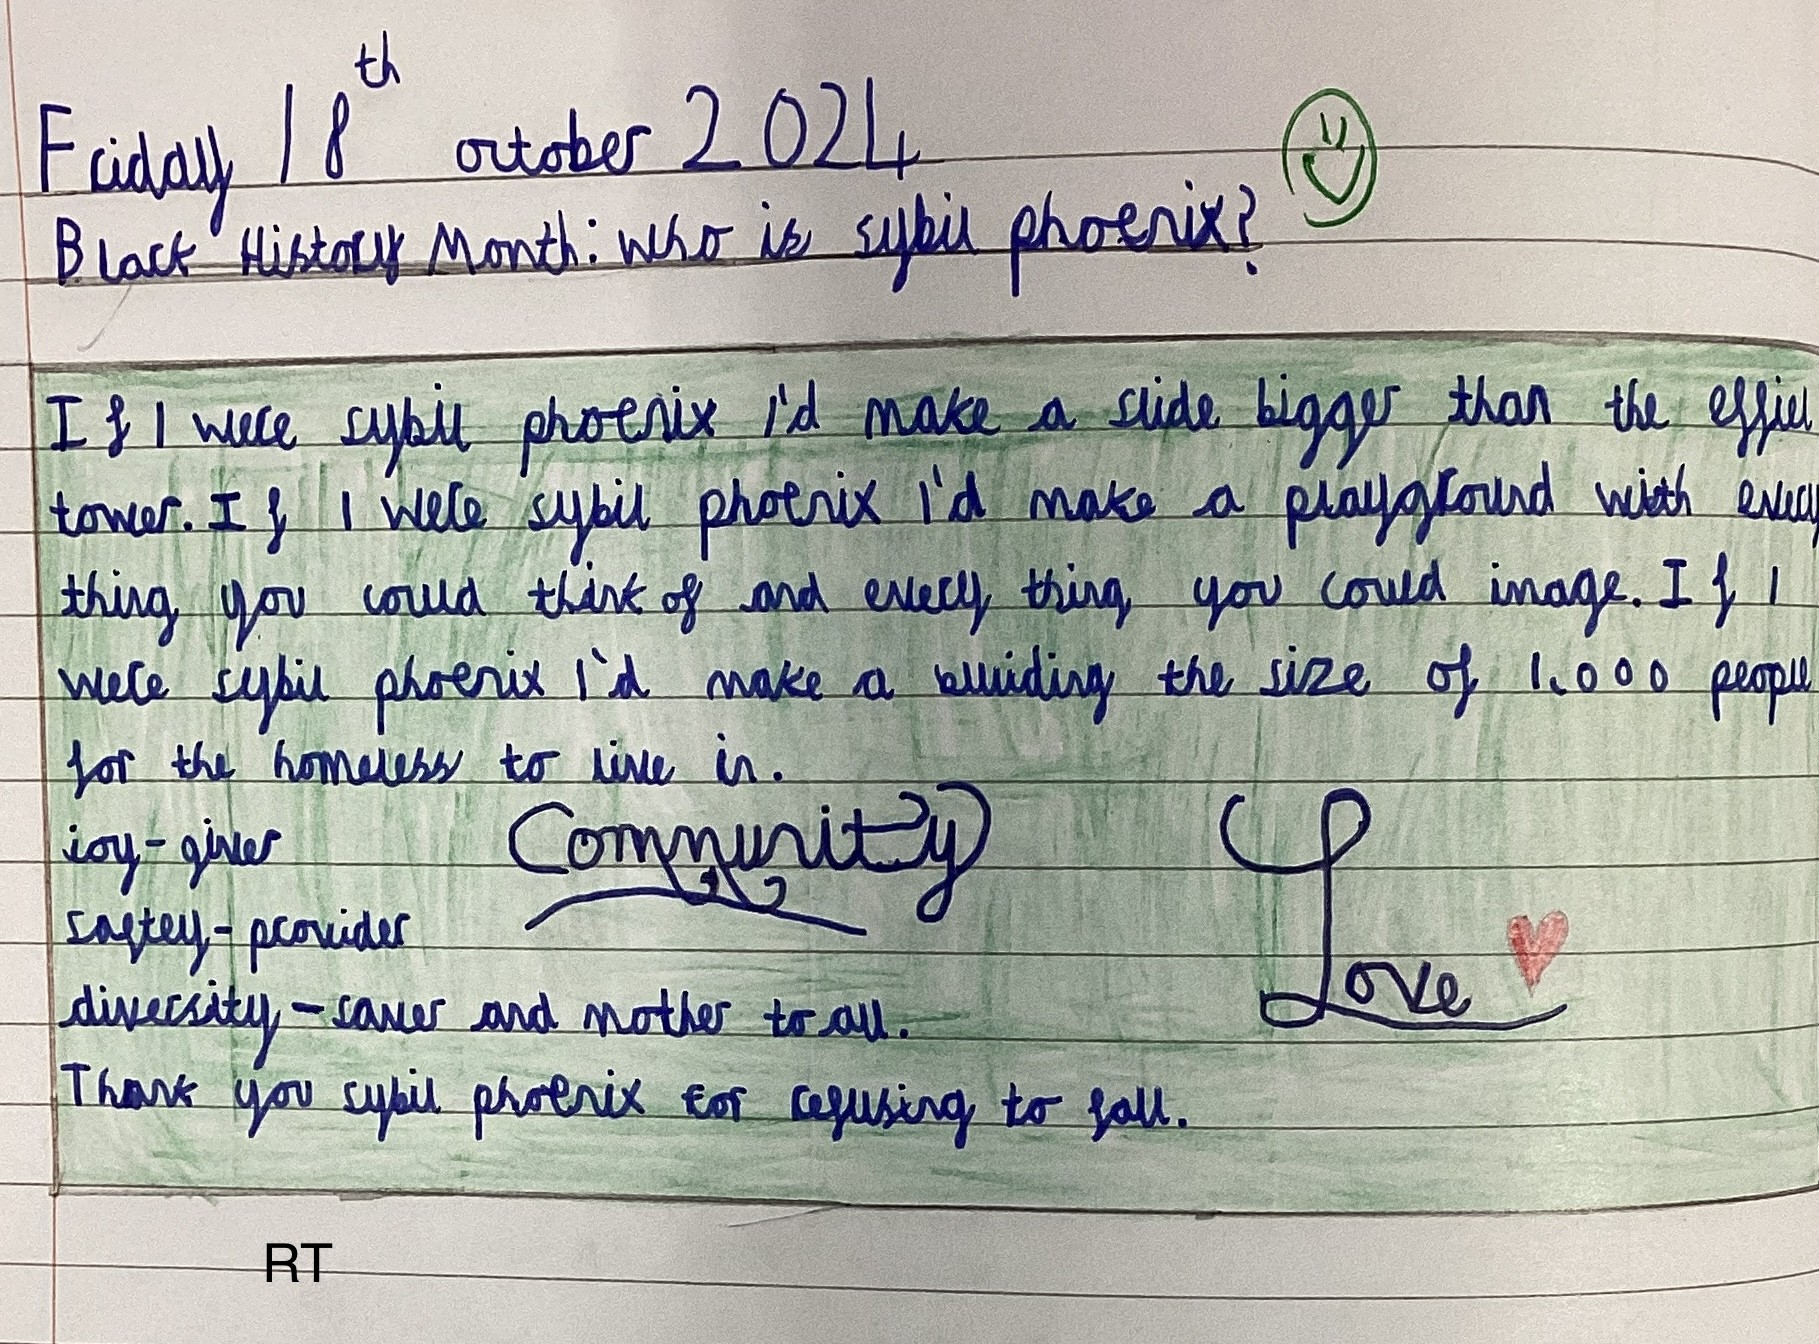 Friday 18th october 2024
Black History Month: who is sybil phoenix?
If I were sybil phoenix I'd make a slide bigger than the effiel
tower. If I were sybil phoenix I'd make a playground with every
thing you could think of and every thing you could image. If I
were sybil phoenix I'd make a bluiding the size of 1,000 people
for the homeless to live in.
joy-giver
Community
Love
saftey-provider
diversity-saver and mother to all.
Thank you sybil phoenix for refusing to fall.
RT